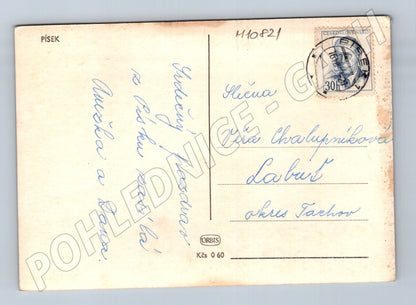 PÍSEK
M10821
ČESKOSLOVENSKO
30h
PÍSEK 1
Srdečný pozdrav
z Písku zasílá
Anička a Dana
Slečna
Věra Chalupníková
Labuť
okres Tachov
ORBIS
Kčs 0 60
POHLEDNICE-